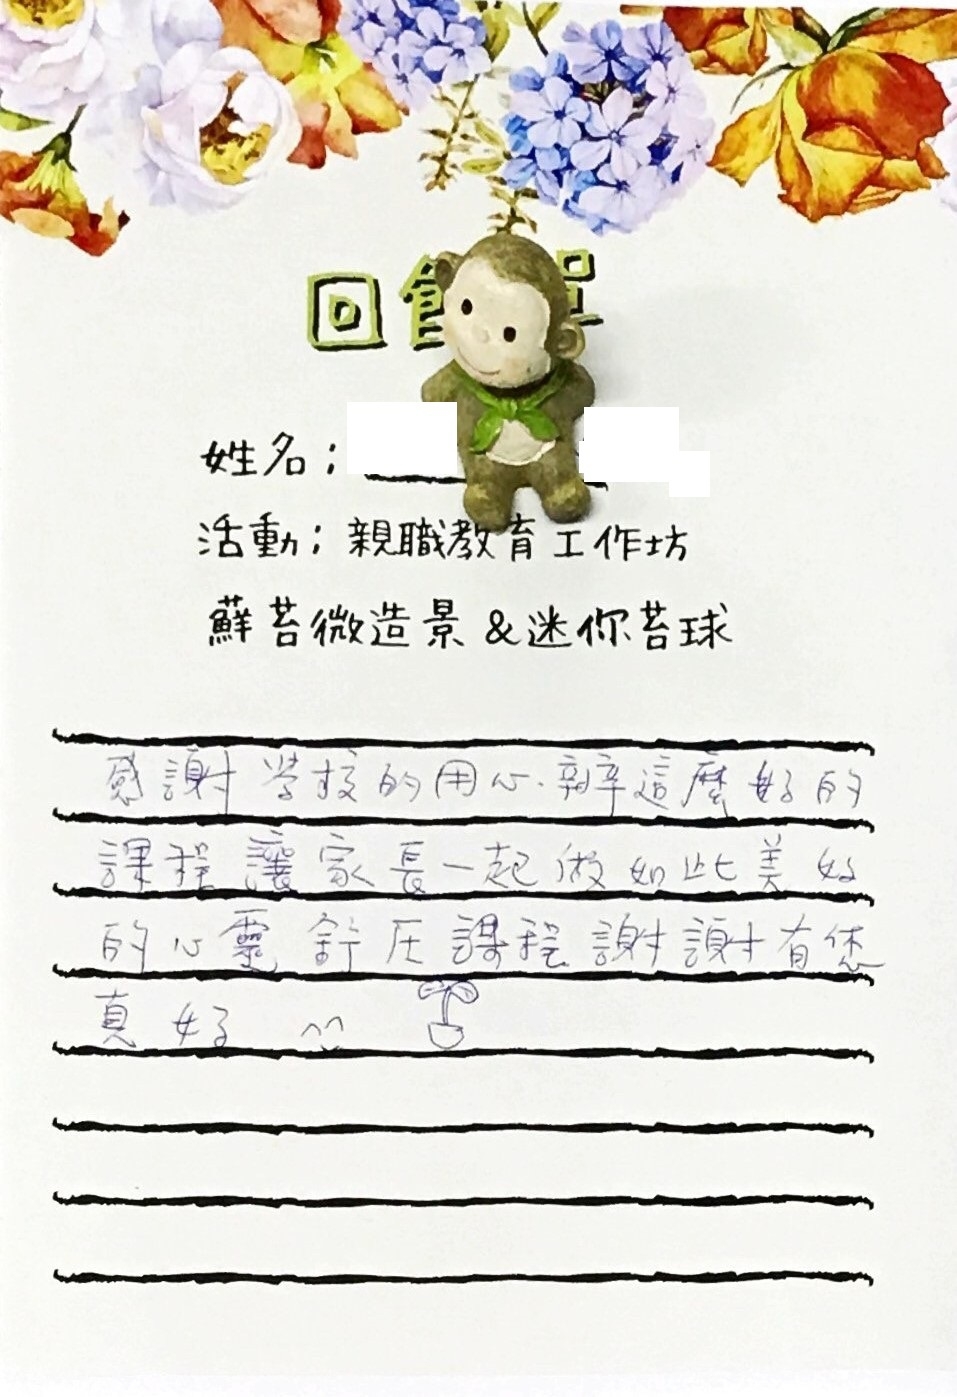 回饋單
姓名；
活動；親職教育工作坊
蘇苔微造景＆迷你苔球
感謝學校的用心.辦這麼好的
課程讓家長一起做如此美好
的心靈舒压課程謝謝有您
真好